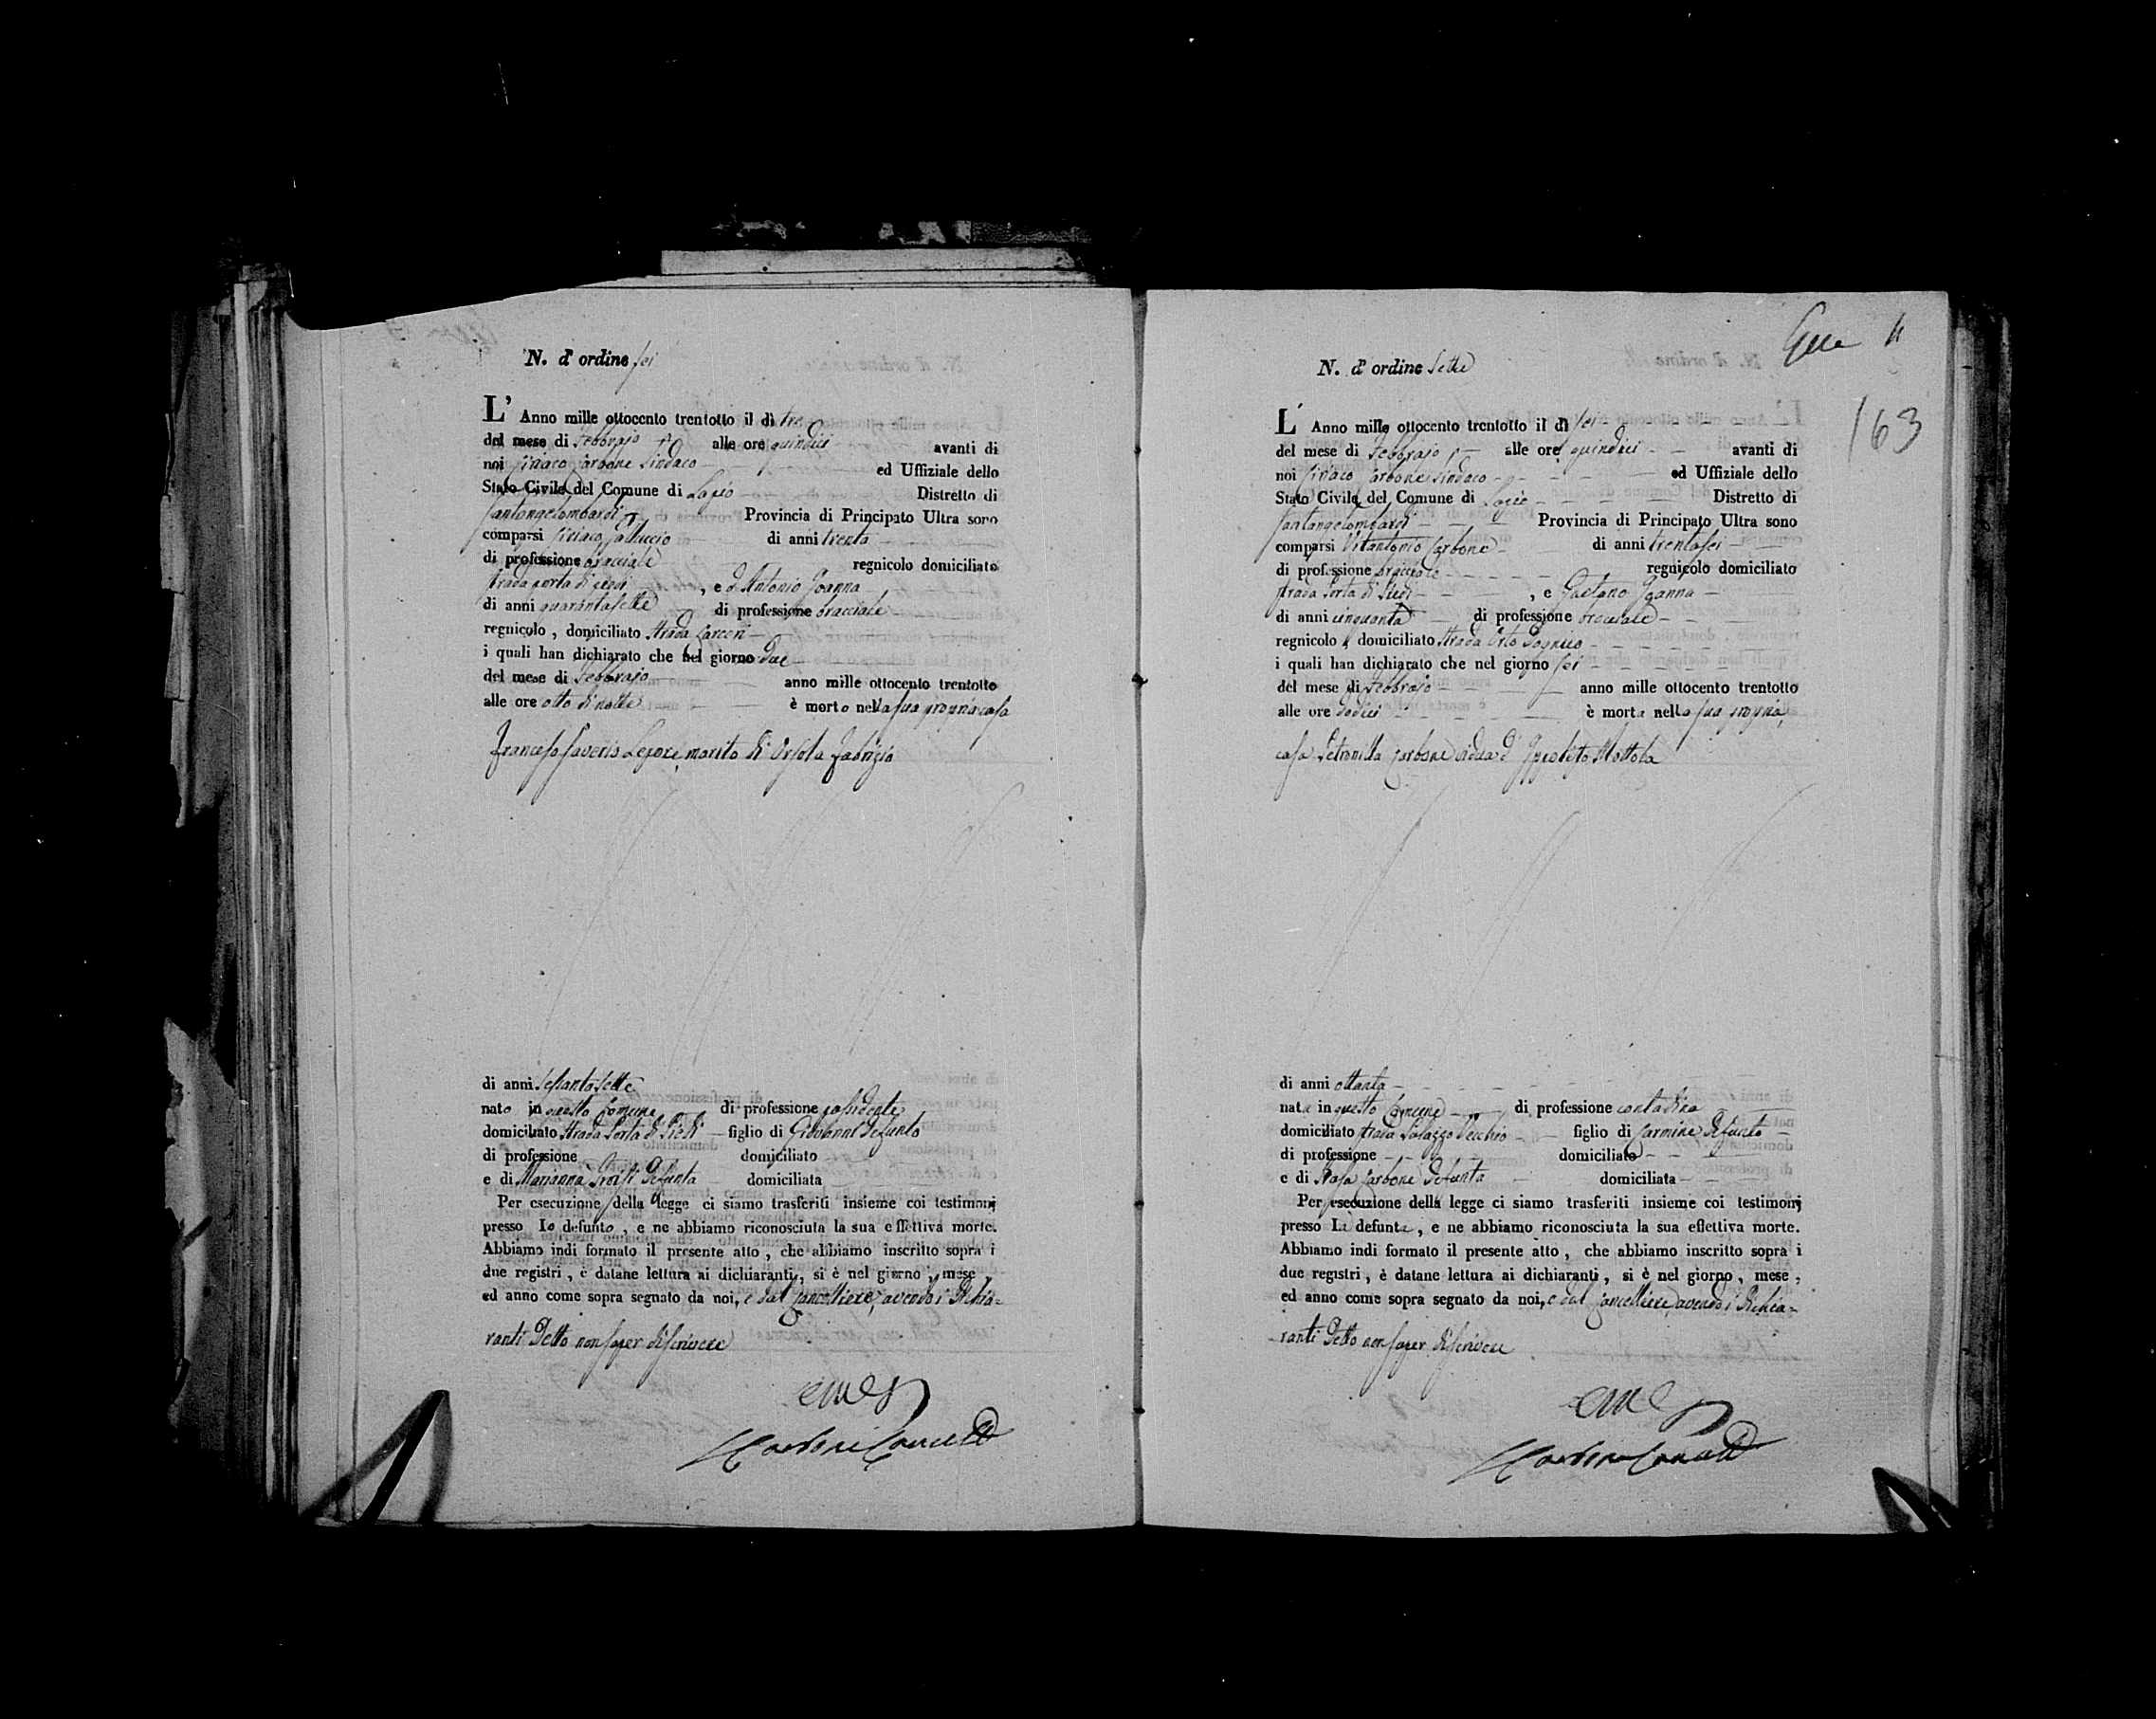 N. d'ordine sei
L' Anno mille ottocento trentotto il dì tre
del mese di Febbrajo alle ore quindici avanti di
noi Ciriaco Carbone Sindaco ed Uffiziale dello
Stato Civile del Comune di Lagio Distretto di
Santangelombardi Provincia di Principato Ultra sono
comparsi Ciriaco Galluccio di anni trenta
di professione bracciale regnicolo domiciliato
strada porta di piedi , e d Antonio Joanna
di anni quarantasette di professione bracciale
regnicolo , domiciliato strada Carceri
i quali han dichiarato che nel giorno due
del mese di Febbrajo anno mille ottocento trentotto
alle ore otto di notte è morto nella sua propria casa
Francesco Saverio Lepore marito di Orsola Fabrizio
di anni Sessantasette
nato in questo Comune di professione possidente
domiciliato strada Porta di Piedi figlio di Giovanni defunto
di professione domiciliato
e di Marianna Troisi defunta domiciliata
Per esecuzione della legge ci siamo trasferiti insieme coi testimonj
presso lo defunto , e ne abbiamo riconosciuta la sua effettiva morte.
Abbiamo indi formato il presente atto , che abbiamo inscritto sopra i
due registri , e datane lettura ai dichiaranti , si è nel giorno , mese ,
ed anno come sopra segnato da noi, e dal Cancelliere, avendo i dichia-
ranti detto non saper di scrivere
Carbone
4
163
N. d'ordine Sette
L' Anno mille ottocento trentotto il dì sei
del mese di Febbrajo alle ore quindici avanti di
noi Ciriaco Carbone Sindaco ed Uffiziale dello
Stato Civile del Comune di Lagio Distretto di
Santangelombardi Provincia di Principato Ultra sono
comparsi Vitantonio Carbone di anni trentasei
di professione bracciale regnicolo domiciliato
strada Porta di Piedi , e Gaetano Joanna
di anni cinquanta di professione bracciale
regnicolo , domiciliato strada Orto
i quali han dichiarato che nel giorno sei
del mese di Febbrajo anno mille ottocento trentotto
alle ore dodici è morta nella sua propria
casa Petronilla Carbone vidua d' Ippolito Mottola
di anni ottanta
nata in questo Comune di professione contadina
domiciliato strada Palazzo Vecchio figlio di Carmine defunto
di professione domiciliato
e di Rosa Carbone defunta domiciliata
Per esecuzione della legge ci siamo trasferiti insieme coi testimonj
presso la defunta , e ne abbiamo riconosciuta la sua effettiva morte.
Abbiamo indi formato il presente atto , che abbiamo inscritto sopra i
due registri , è datane lettura ai dichiaranti , si è nel giorno , mese ,
ed anno come sopra segnato da noi, e dal Cancelliere, avendo i dichia-
ranti detto non saper di scrivere
Carbone